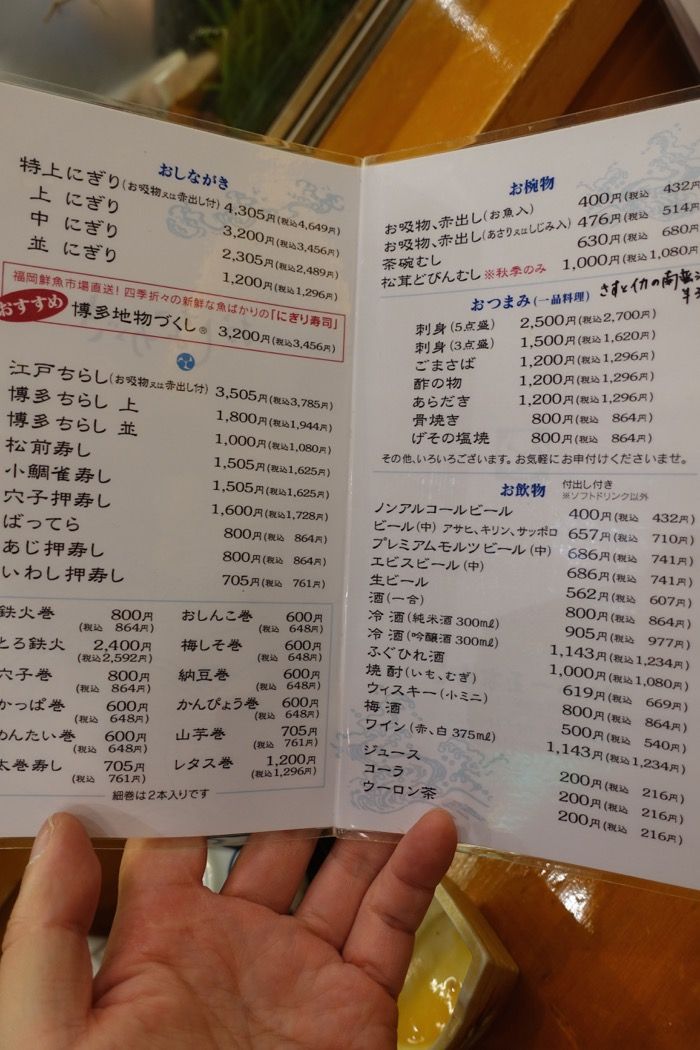 おしながき
特上にぎり(お吸物又は赤出し付) 4,305円(税込4,649円)
上 にぎり 3,200円(税込3,456円)
中 にぎり 2,305円(税込2,489円)
並 にぎり 1,200円(税込1,296円)
福岡鮮魚市場直送!四季折々の新鮮な魚ばかりの「にぎり寿司」
おすすめ 博多地物づくし® 3,200円(税込3,456円)
江戸ちらし(お吸物又は赤出し付) 3,505円(税込3,785円)
博多ちらし 上 1,800円(税込1,944円)
博多ちらし 並 1,000円(税込1,080円)
松前寿し 1,505円(税込1,625円)
小鯛雀寿し 1,505円(税込1,625円)
穴子押寿し 1,600円(税込1,728円)
ばってら 800円(税込 864円)
あじ押寿し 800円(税込 864円)
いわし押寿し 705円(税込 761円)
鉄火巻 800円(税込 864円) おしんこ巻 600円(税込 648円)
とろ鉄火 2,400円(税込2,592円) 梅しそ巻 600円(税込 648円)
穴子巻 800円(税込 864円) 納豆巻 600円(税込 648円)
かっぱ巻 600円(税込 648円) かんぴょう巻 600円(税込 648円)
めんたい巻 600円(税込 648円) 山芋巻 705円(税込 761円)
太巻寿し 705円(税込 761円) レタス巻 1,200円(税込1,296円)
細巻は2本入りです
お椀物
お吸物、赤出し(お魚入) 400円(税込 432円)
お吸物、赤出し(あさり又はしじみ入) 476円(税込 514円)
茶碗むし 630円(税込 680円)
松茸どびんむし ※秋季のみ 1,000円(税込1,080円)
おつまみ(一品料理)
刺身(5点盛) 2,500円(税込2,700円)
刺身(3点盛) 1,500円(税込1,620円)
ごまさば 1,200円(税込1,296円)
酢の物 1,200円(税込1,296円)
あらだき 1,200円(税込1,296円)
骨焼き 800円(税込 864円)
げその塩焼 800円(税込 864円)
その他、いろいろございます。お気軽にお申付けくださいませ。
お飲物 付出し付き
※ソフトドリンク以外
ノンアルコールビール 400円(税込 432円)
ビール(中) アサヒ、キリン、サッポロ 657円(税込 710円)
プレミアムモルツビール(中) 686円(税込 741円)
エビスビール(中) 686円(税込 741円)
生ビール 562円(税込 607円)
酒(一合) 800円(税込 864円)
冷酒(純米酒 300㎖) 905円(税込 977円)
冷酒(吟醸酒 300㎖) 1,143円(税込1,234円)
ふぐひれ酒 1,000円(税込1,080円)
焼酎(いも、むぎ) 619円(税込 669円)
ウィスキー(小ミニ) 800円(税込 864円)
梅酒 500円(税込 540円)
ワイン(赤、白 375㎖) 1,143円(税込1,234円)
ジュース 200円(税込 216円)
コーラ 200円(税込 216円)
ウーロン茶 200円(税込 216円)